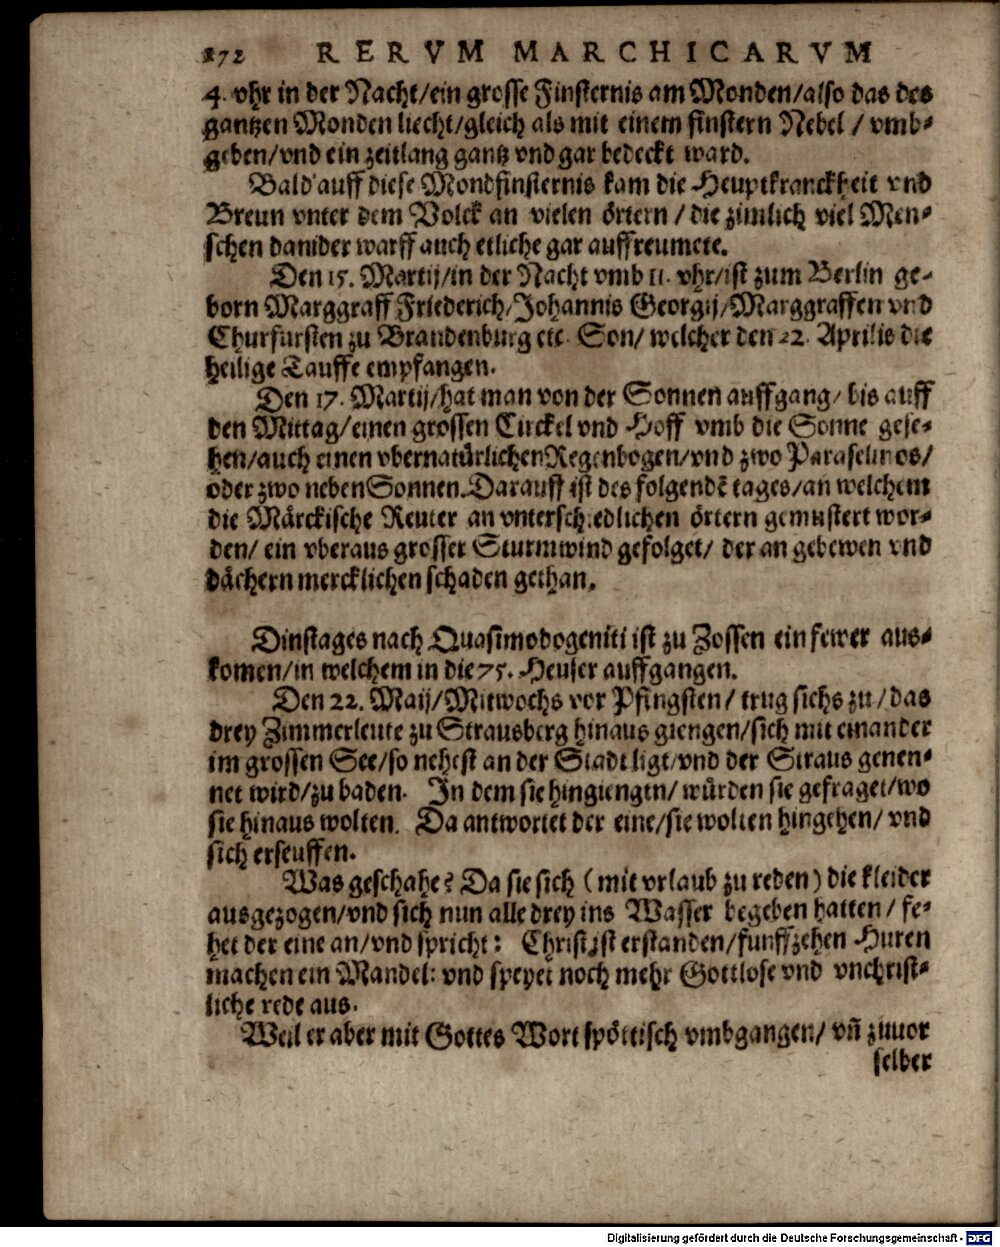 172 RERVM MARCHICARVM
4. vhr in der Nacht/ein grosse Finsternis am Monden/also das des
gantzen Monden liecht/gleich als mit einem finstern Nebel / vmb-
geben/vnd ein zeitlang gantz vnd gar bedeckt ward.
Bald auff diese Mondfinsternis kam die Heuptkranckheit vnd
Breun vnter dem Volck an vielen örtern / die zimlich viel Men-
schen danider warff auch etliche gar auffreumete.
Den 15. Martij/in der Nacht vmb 11. vhr/ist zum Berlin ge-
born Marggraff Friederich/Johannis Georgij/Marggraffen vnd
Churfursten zu Brandenburg etc. Son/ welcher den 22. Aprilis die
heilige Tauffe empfangen.
Den 17. Martij/hat man von der Sonnen auffgang/ bis auff
den Mittag/einen grossen Circkel vnd Hoff vmb die Sonne gese-
hen/auch einen vbernatürlichen Regenbogen/vnd zwo Paraselinos/
oder zwo neben Sonnen. Darauff ist des folgendē tages/an welchem
die Märckische Reuter an vnterschiedlichen örtern gemustert wor-
den/ ein vberaus grosser Sturmwind gefolget/ der an gebewen vnd
dächern mercklichen schaden gethan.
Dinstages nach Quasimodogeniti ist zu Zossen ein fewer aus-
komen/in welchem in die 75. Heuser auffgangen.
Den 22. Maij/Mitwochs vor Pfingsten/ trug sichs zu/ das
drey Zimmerleute zu Strausberg hinaus giengen/sich mit einander
im grossen See/so nehest an der Stadt ligt/vnd der Straus genen-
net wird/zu baden. In dem sie hingiengen/ würden sie gefraget/wo
sie hinaus wolten. Da antwortet der eine/sie wolten hingehen/ vnd
sich erseuffen.
Was geschahe? Da sie sich (mit vrlaub zu reden) die kleider
ausgezogen/vnd sich nun alle drey ins Wasser begeben hatten / fe-
het der eine an/vnd spricht: Christ ist erstanden/funffzehen Huren
machen ein Mandel: vnd speyet noch mehr Gottlose vnd vnchrist-
liche rede aus.
Weil er aber mit Gottes Wort spöttisch vmbgangen/ vñ zuuor
selber
Digitalisierung gefördert durch die Deutsche Forschungsgemeinschaft - DFG